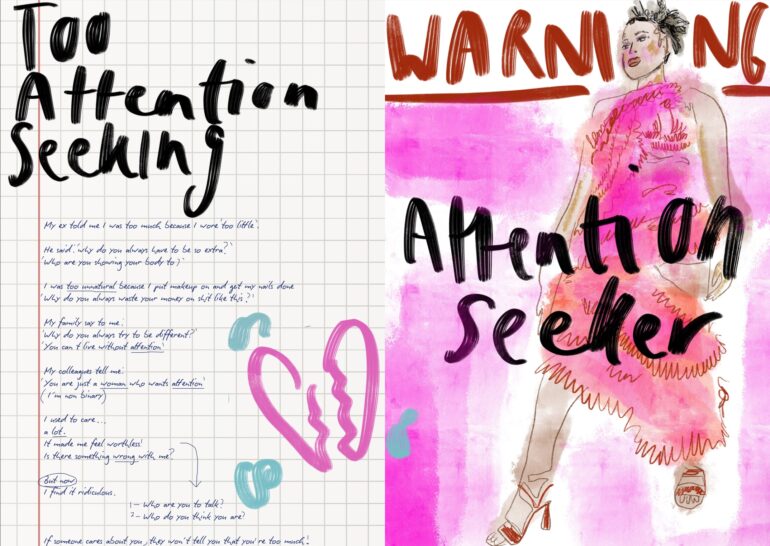 Too
Attention
Seeking
My ex told me I was too much, because I wore 'too little'.
He said: 'why do you always have to be so extra?'
'Who are you showing your body to?'
I was too unnatural because I put makeup on and get my nails done
'Why do you always waste your money on shit like this?'
My family say to me:
'Why do you always try to be different?'
'You can't live without attention'
My colleagues tell me:
'You are just a woman who wants attention'
(I'm non binary)
I used to care...
a lot.
It made me feel worthless!
Is there something wrong with me?
But now
I find it ridiculous.
1 - Who are you to talk?
2 - Who do you think you are?
If someone cares about you, they won't tell you that you're too much!
WARNING
Attention
Seeker